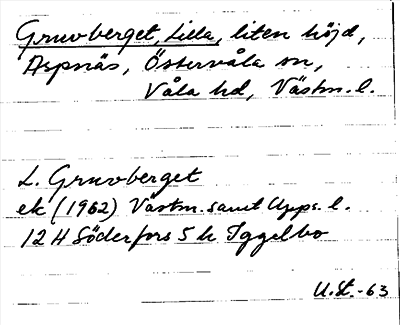 Gruvberget, Lilla, liten höjd,
Aspnäs, Östervåla sn,
Våla hd, Västm. l.
L. Gruvberget
ek (1962) Västm. samt Upps. l.
12 H Söderfors 5 h Iggelbo
U.L.-63